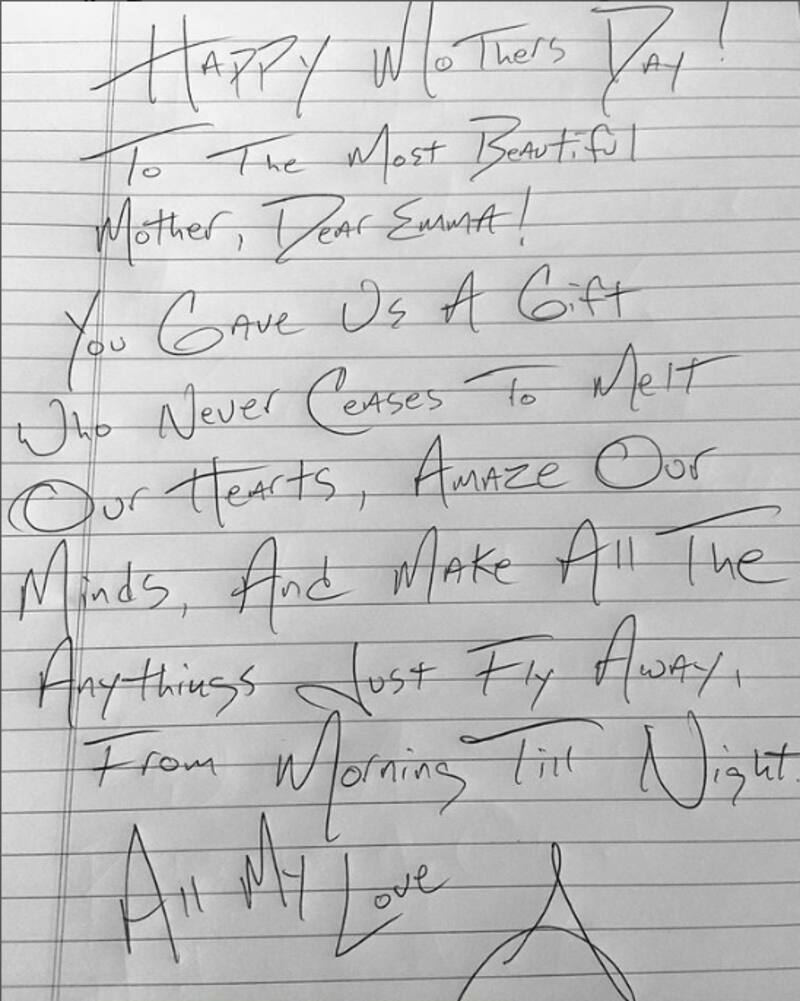 Happy Mothers Day!
To The Most Beautiful
Mother, Dear Emma!
You Gave Us A Gift
Who Never Ceases To Melt
Our Hearts, Amaze Our
Minds, And Make All The
Anythings Just Fly Away,
From Morning Till Night.
All My Love